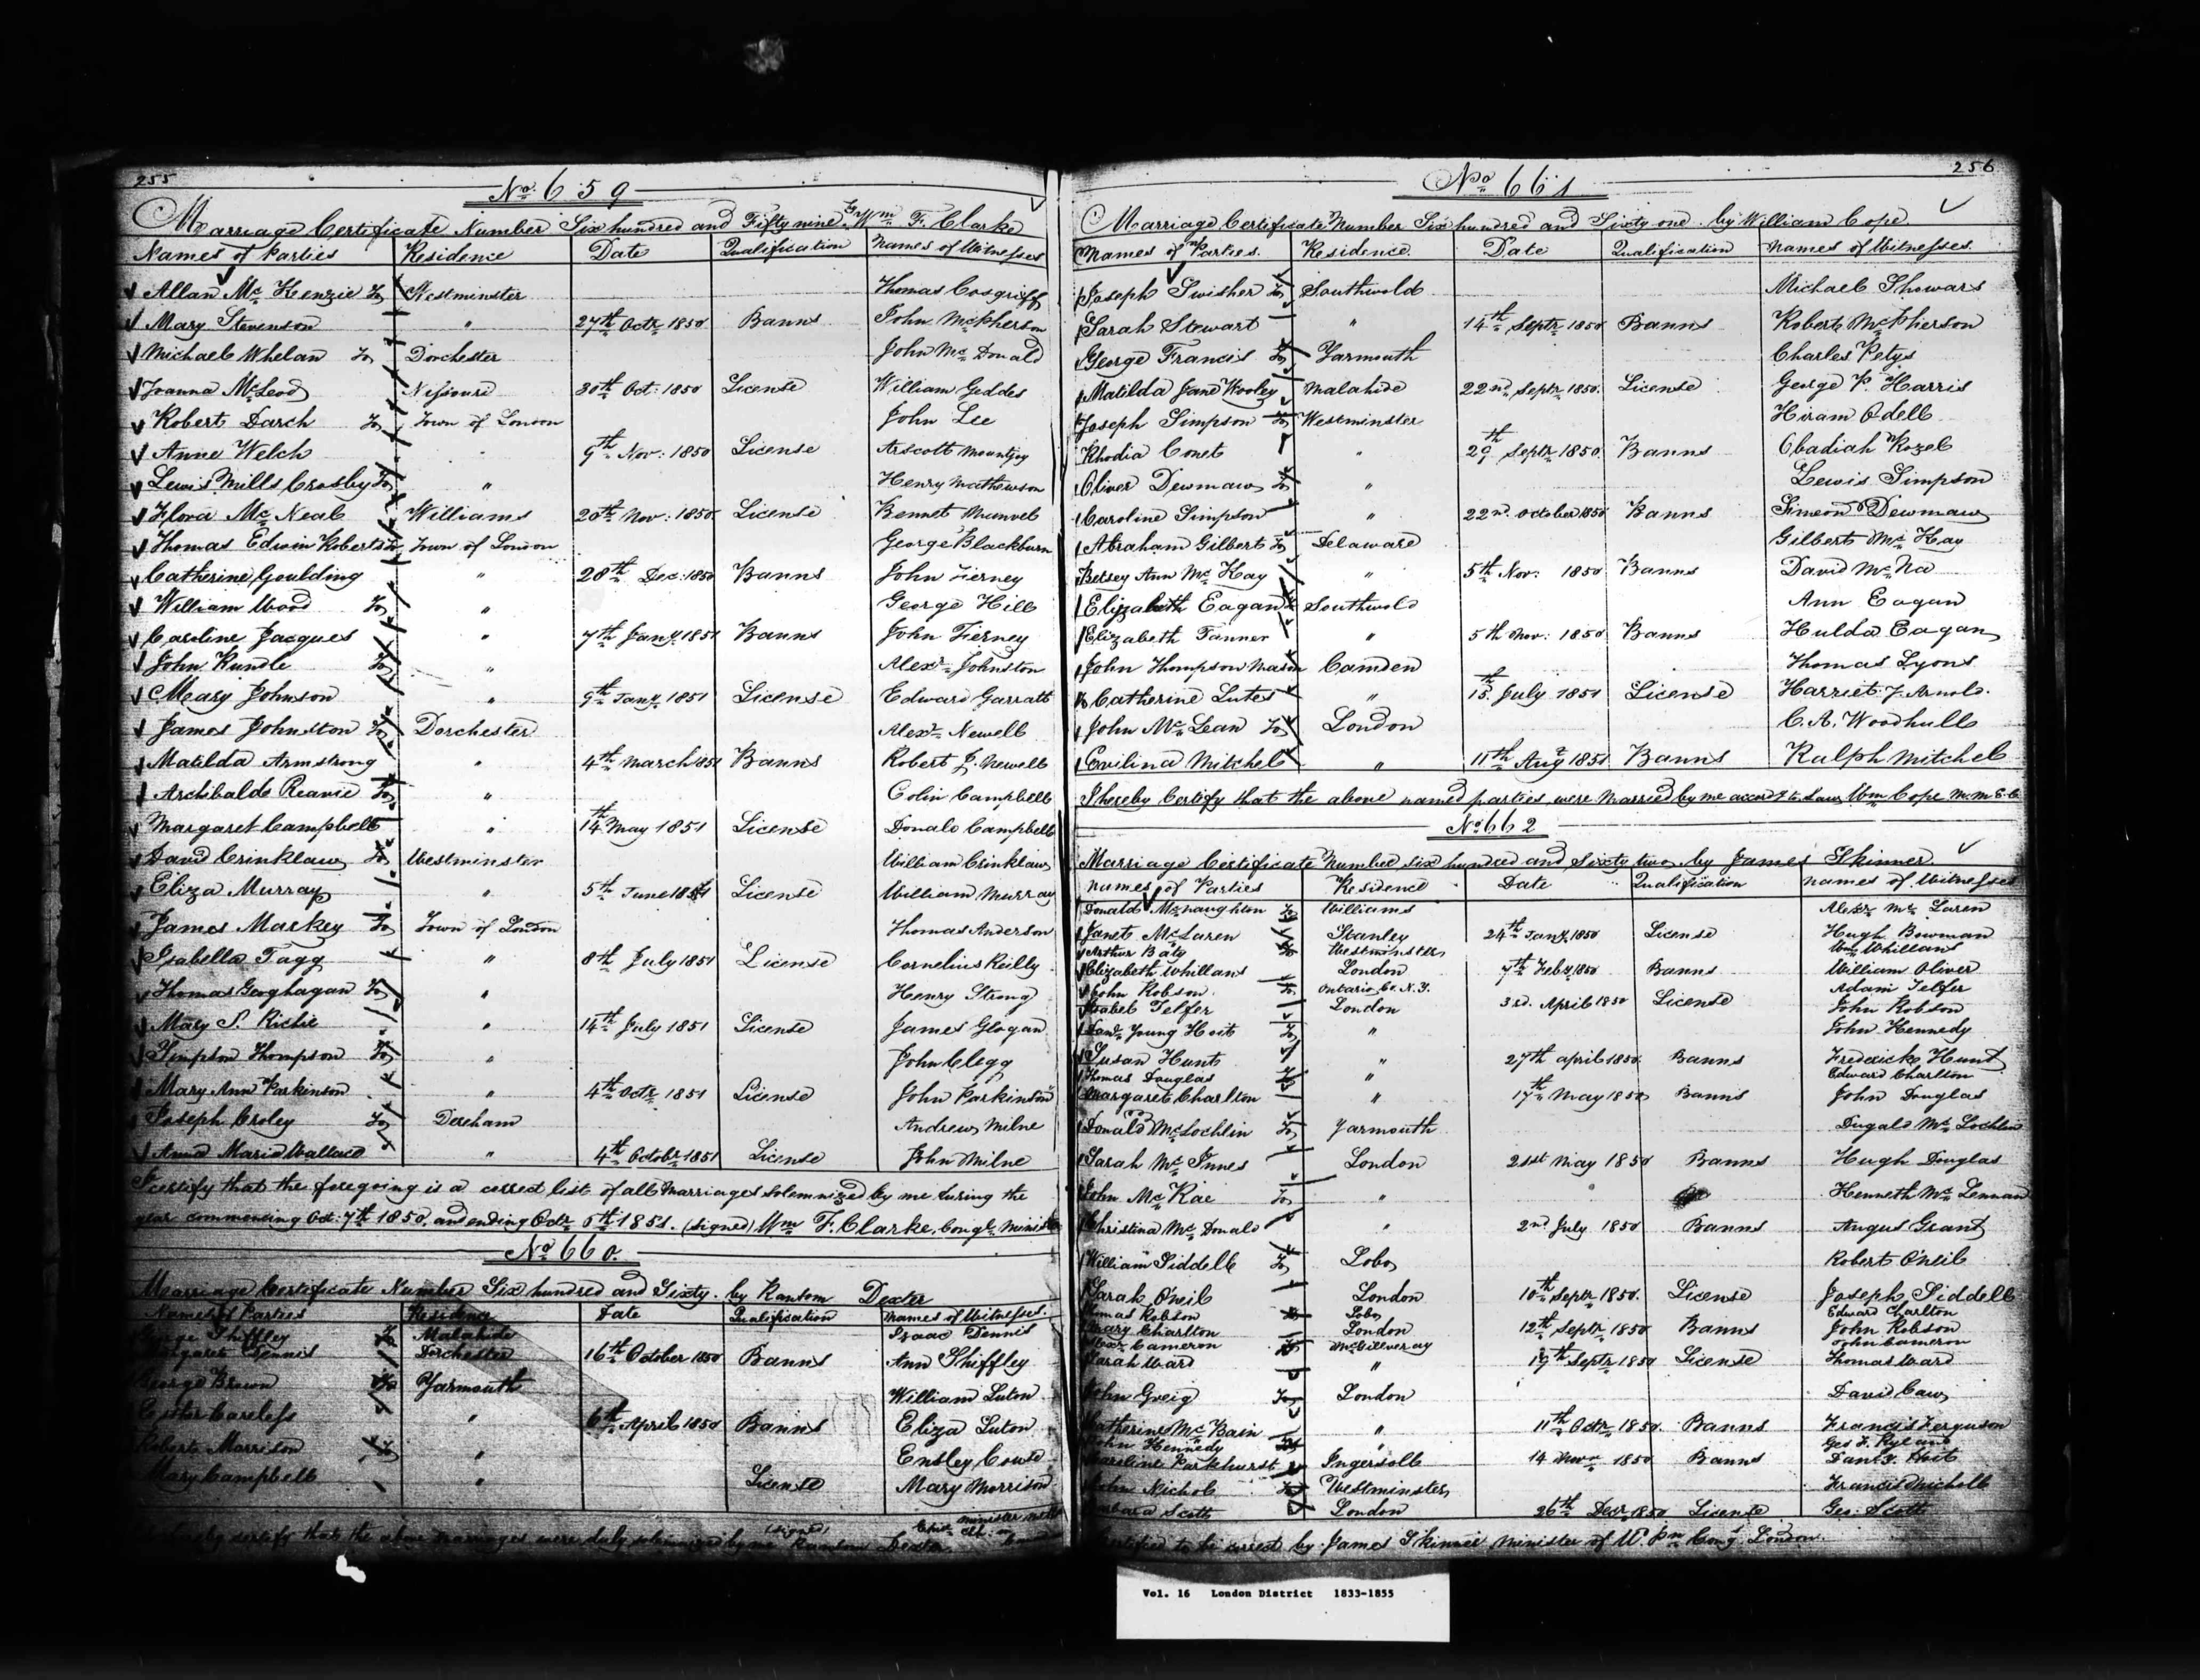 255
No. 659
Marriage Certificate Number Six hundred and Fifty nine by Wm F. Clarke
Names of Parties Residence Date Qualification Names of Witnesses
Allan Mc Kenzie To Westminster Thomas Cosgriff
Mary Stevenson " 27th Octr 1850 Banns John McPherson
Michael Whelan To Dorchester John Mc Donald
Joanna McLeod Nissouri 30th Oct: 1850 License William Geddes
Robert Darch To Town of London John Lee
Anne Welch " 9th Nov: 1850 License Arscott Mountjoy
Lewis Mills Crosby To " Henry Mathewson
Flora Mc Neal Williams 20th Nov: 1850 License Bennet Manvel
Thomas Edwin Roberts To Town of London George Blackburn
Catherine Goulding " 28th Dec: 1850 Banns John Tierney
William Wood To " George Hill
Caroline Jacques " 7th Jany 1851 Banns John Tierney
John Rundle To " Alexr Johnston
Mary Johnson " 9th Jany 1851 License Edward Garratt
James Johnston To Dorchester Alexr Newell
Matilda Armstrong " 4th March 1851 Banns Robert J. Newell
Archibald Reavie To " Colin Campbell
Margaret Campbell " 14th May 1851 License Donald Campbell
David Crinklaw To Westminster William Crinklaw
Eliza Murray " 5th June 1851 License William Murray
James Markey To Town of London Thomas Anderson
Isabella Tagg " 8th July 1851 License Cornelius Reilly
Thomas Geoghagan To " Henry Strong
Mary S. Richie " 14th July 1851 License James Glogan
Simpson Thompson To " John Clegg
Mary Ann Parkinson " 4th Octr 1851 License John Parkinson
Joseph Croley To Dereham Andrew Milne
Anna Maria Wallace " 4th Octobr 1851 License John Milne
I certify that the foregoing is a correct list of all Marriages solemnized by me during the
year commencing Oct: 7th 1850, and ending Octr 6th 1851. (signed) Wm F. Clarke, Congl Minister
No 660.
Marriage Certificate Number Six hundred and Sixty. by Ransom Dexter
Names of Parties Residence Date Qualification Names of Witnesses.
George Shiffley To Malahide Isaac Dennis
Margaret Dennis Dorchester 16th October 1850 Banns Ann Shiffley
George Brown To Yarmouth William Luton
Careless " 6th April 1850 Banns Eliza Luton
Robert Morrison To " Ensley
Mary Campbell " License Mary Morrison
certify that the above marriages were duly solemnized by me (signed) Ransom Dexter
256
No 661
Marriage Certificate Number Six hundred and Sixty one by William Cope
Names of Parties. Residence. Date Qualification Names of Witnesses.
Joseph Swisher To Southwold Michael Showars
Sarah Stewart " 14th Septr 1850 Banns Robert McPherson
George Francis To Yarmouth Charles Petys
Matilda Jane Wooley Malahide 22nd Septr 1850. License George P. Harris
Joseph Simpson To Westminster Hiram Odell
Rhodia Conet " 29th Septr 1850. Banns Obadiah Rozel
Oliver Dewmaw To " Lewis Simpson
Caroline Simpson " 22nd October 1850 Banns Simeon Dewmaw
Abraham Gilbert To Delaware Gilbert Mc Kay
Betsey Ann Mc Kay " 5th Nov: 1850 Banns David Mc Na
Elizabeth Eagan To Southwold Ann Eagan
Elizabeth Tanner " 5th Nov: 1850 Banns Hulda Eagan
John Thompson Mason Camden Thomas Lyons
Catherine Lutes " 15th July 1851 License Harriet J. Arnold.
John Mc Lean To London C. A. Woodhull
Evilina Mitchel " 11th Aug 1851 Banns Ralph Mitchel
I hereby Certify that the above named parties, were Married by me accordg to Law, Wm Cope M. M. E. C.
No 662
Marriage Certificate Number Six hundred and Sixty two by James Skinner
Names of Parties Residence Date Qualification Names of Witnesses
Donald McNaughton To Williams Alexr Mc Laren
Janet McLaren Stanley 24th Jany 1850 License Hugh Bowman
Arthur Baty To Westminster Wm Whillans
Elizabeth Whillans London 7th Feby 1850 Banns William Oliver
John Robson To Ontario Co. N.Y. Adam Telfer
Isabel Telfer London 3rd. April 1850 License John Robson
Danl Young Hoit To " John Kennedy
Susan Hunt " 27th april 1850. Banns Frederick Hunt
Thomas Douglas To " Edward Charlton
Margaret Charlton " 17th May 1850 Banns John Douglas
Donald McLochlin To Yarmouth Dugald Mc Lochlin
Sarah Mc Innes London 21st May 1850 Banns Hugh Douglas
John Mc Rae To " Kenneth Mc Lennan
Christina Mc Donald " 2nd July 1850 Banns Angus Grant
William Siddell To Lobo Robert O'neil
Sarah O'neil London 10th Septr 1850. License Joseph Siddell
Thomas Robson To Lobo Edward Charlton
Mary Charlton London 12th Septr 1850 Banns John Robson
Alexr Cameron To McGilveray John Cameron
Sarah Ward " 19th Septr 1850 License Thomas Ward
John Greig To London David Caw
Catherine Mc Bain " 11th Octr 1850. Banns Francis Ferguson
John Kennedy To " Geo F. Ryland
Caroline Parkhurst Ingersoll 14 Novr 1850 Banns Danl Y. Hoit
John Nichol To Westminster Francis Nicholl
Barbara Scott London 26th Decr 1850 License Geo: Scott
Certified to be correct by James Skinner Minister of U. Pn Cong. London.
Vol. 16 London District 1833-1855